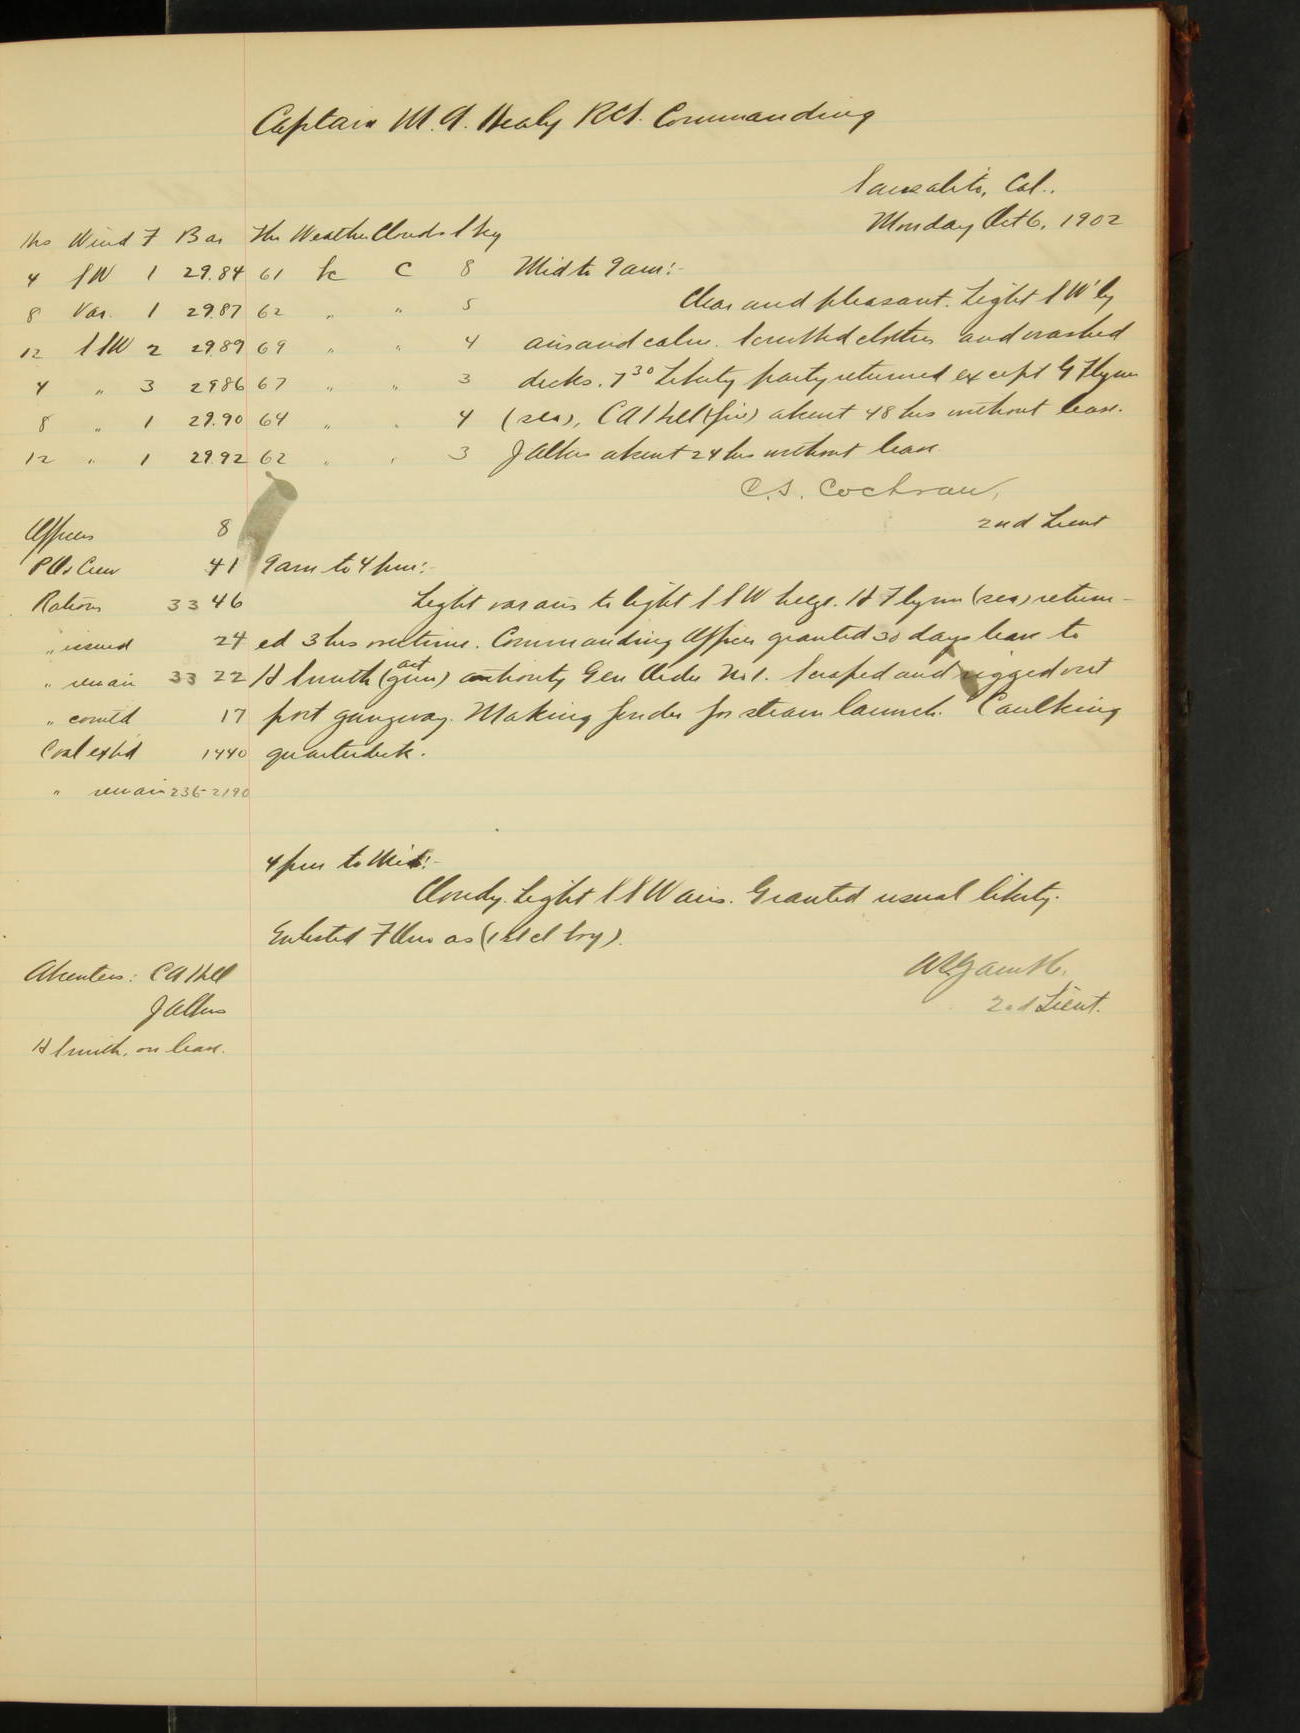 Captain M.A. Healy RCS. Commanding
Sausalito, Cal.
Monday Oct 6, 1902
Hrs Wind F Bar Ther Weather Clouds Sky
4 SW 1 29.84 61 bc C 8 Mid to 9am:-
8 Var. 1 29.87 62 " " 5 Clear and pleasant. Light SW'ly
12 SSW 2 29.89 69 " " 4 airs and calm. Scrubbed clothes and washed
4 " 3 29.86 67 " " 3 decks. 7 30 Liberty party returned except G Flynn
8 " 1 29.90 64 " " 4 (sea), CA (fire) absent 48 hrs without leave.
12 " 1 29.92 62 " " 3 J absent 24 hrs without leave.
C.S. Cochran,
2nd Lieut
Officers 8
POs Crew 41 9am to 4pm:-
Rations 33 46 Light var airs to light SSW breeze. H Flynn (sea) return-
" issued 24 ed 3 hrs overtime. Commanding Officer granted 30 days leave to
" remain 33 22 H Smith (act gun) authority Gen Order No 1. Scraped and rigged out
" comtd 17 port gangway. Making fender for steam launch. Caulking
Coal exp'd 1440 quarterdeck.
" remain 236-2190
4pm to Mid:-
Cloudy. Light SSW airs. Granted usual liberty.
Enlisted F as (1st cl boy).
Absentees: CA
J
2nd Lieut.
H Smith, on leave.